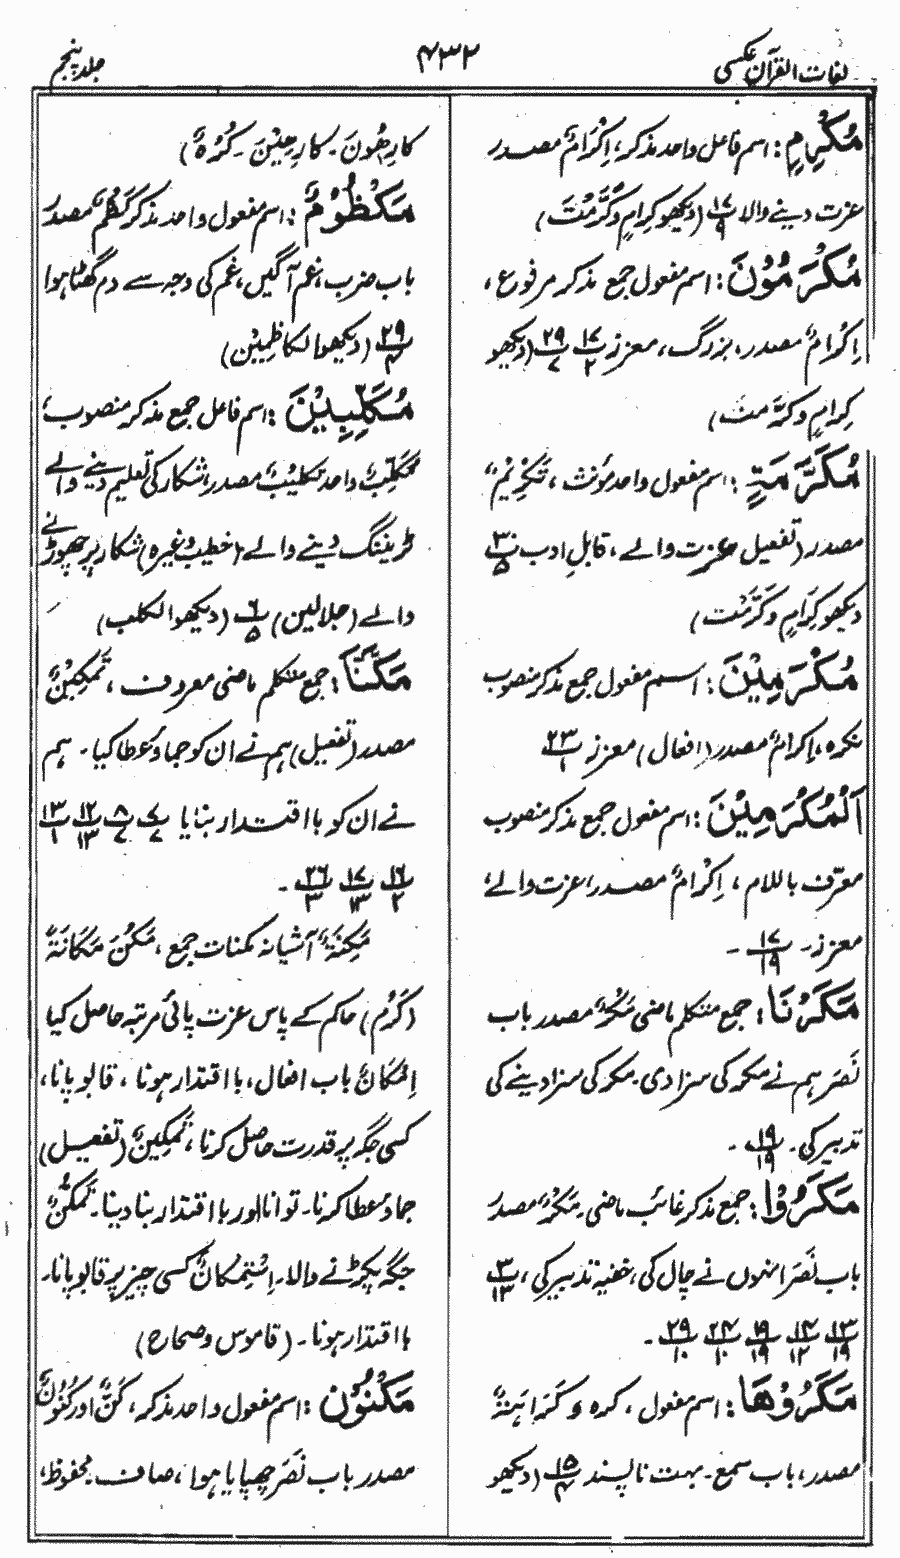 لغات القرآن عکسی
۴۳۲
جلد پنجم
مُکْرِمٍ: اسم فاعل واحد مذکر، اِکْرَامٌ مصدر
عزت دینے والا ۱۷/۹ (دیکھو کِرَامٍ وکَرَّمْتَ)
مُکْرَمُوْنَ: اسم مفعول جمع مذکر مرفوع،
اِکْرَامٌ مصدر، بزرگ، معزز ۱۷/۲ ۲۹/۷ (دیکھو
کِرَامٍ وکرَّمتَ)
مُکَرَّمَۃٍ: اسم مفعول واحد مؤنث، تَکْرِیْمٌ
مصدر (تفعیل) عزت والے، قابلِ ادب ۳۰/۵
دیکھو کِرَامٍ وکَرَّمْتَ)
مُکْرَمِیْنَ: اسم مفعول جمع مذکر منصوب
نکرہ، اِکرامٌ مصدر (افعال) معزز ۲۳/۱
اَلْمُکْرَمِیْنَ: اسم مفعول جمع مذکر منصوب
معرّف باللام، اِکْرَامٌ مصدر، عزت والے،
معزز۔ ۱۷/۱۹ ۔
مَکَرْنَا: جمع متکلم ماضی مَکْرٌ مصدر باب
نَصَرَ ہم نے مکر کی سزا دی۔ مکر کی سزا دینے کی
تدبیر کی۔ ۱۹/۱۹ ۔
مَکَرُوْا: جمع مذکر غائب ماضی۔ مَکْرٌ مصدر
باب نَصَرَ انہوں نے چال کی، خفیہ تدبیر کی، ۳/۱۳
۱۳/۱۹ ۱۴/۱۲ ۱۹/۱۹ ۲۴/۱۰ ۲۹/۱۰ ۔
مَکْرُوْھًا: اسم مفعول، کرہ و کَرَاہِیَۃٌ
مصدر، باب سمع۔ بہت ناپسند ۱۵/۴ (دیکھو
کَارِھُونَ۔ کارِھِیْنَ۔ کُرْہٌ)
مَکْظُوْمٌ: اسم مفعول واحد مذکر کَظْمٌ مصدر
باب ضرب، غم آگیں، غم کی وجہ سے دم گھٹا ہوا
۲۹/۴ (دیکھو الکاظِمِیْن)
مُکَلِّبِیْنَ: اسم فاعل جمع مذکر منصوب،
مُکَلِّبٌ واحد تکلیبٌ مصدر، شکار کی تعلیم دینے والے
ٹریننگ دینے والے (خطیب وغیرہ) شکار پر چھوڑنے
والے (جلالین) ۶/۵ (دیکھو الکلب)
مَکَّنَّا: جمع متکلم ماضی معروف، تَمْکِیْنٌ
مصدر (تفعیل) ہم نے ان کو جماؤ عطا کیا۔ ہم
نے ان کو با اقتدار بنایا ۷/۷ ۸/۷ ۱۲/۱۳ ۱۳/۱
۱۶/۲ ۱۷/۱۳ ۲۶/۳ ۔
مَکِنَۃٌ آشیانہ مکنات جمع، مَکُنَ مَکَانَۃً
(کَرُمَ) حاکم کے پاس عزت پائی مرتبہ حاصل کیا
اِمْکَانٌ باب افعال، با اقتدار ہونا، قابو پانا،
کسی جگہ پر قدرت حاصل کرنا، تَمْکِیْنٌ (تفعیل)
جماؤ عطا کرنا۔ توانا اور با اقتدار بنا دینا۔ تَمَکُّنٌ
جگہ پکڑنے والا۔ اِسْتِمْکَانٌ کسی چیز پر قابو پانا۔
با اقتدار ہونا۔ (قاموس وصحاح)
مَکْنُوْنٍ: اسم مفعول واحد مذکر، کَنٌّ اور کُنُوْنٌ
مصدر باب نَصَرَ چھپایا ہوا، صاف۔ محفوظ،